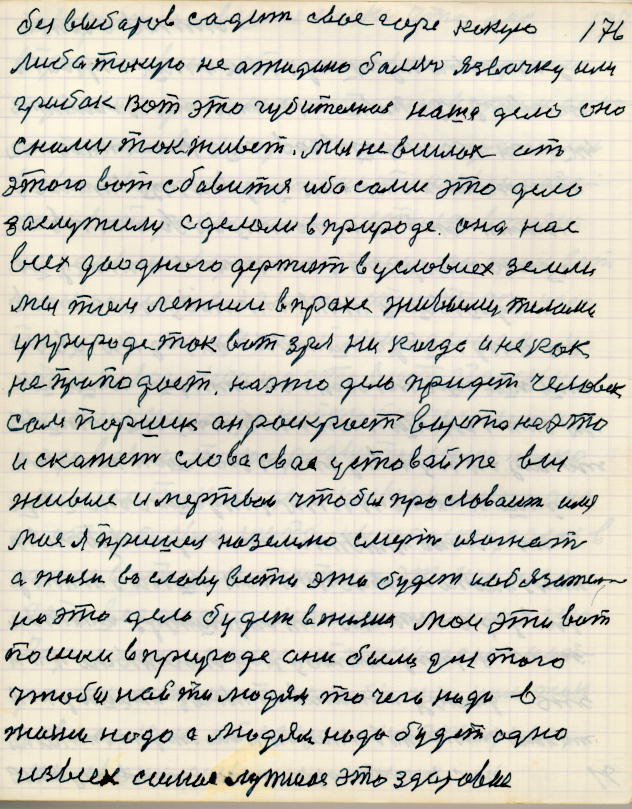 без выбаров садит свае горе какую 176
либа такую не ажидано балячь язвачку или
грибак вот это губителная наше дело оно
снами так живет. мы не вилах от
этого вот сбавится иба сами это дело
заслужили сделали в природе. она нас
всех до одного держит в условиех земли
мы там лежим в прахе живыми телами
у природе так вот зря ни когда и не как
не прападает. на это дело придет человек
сам Паршик ан раскроет варота на это
и скажет слова свае уставайте вы
живые и мертваи чтобы прославит имя
мае я пришел на землю смерть изогнат
а жизн во славу вести это будет и абязателн
но это дело будет в жизни мои эти вот
поиски в природе они были для того
чтобы найти людям то чего надо в
жизни надо а людям надо будет одно
из всех самае лутшае это здаровие